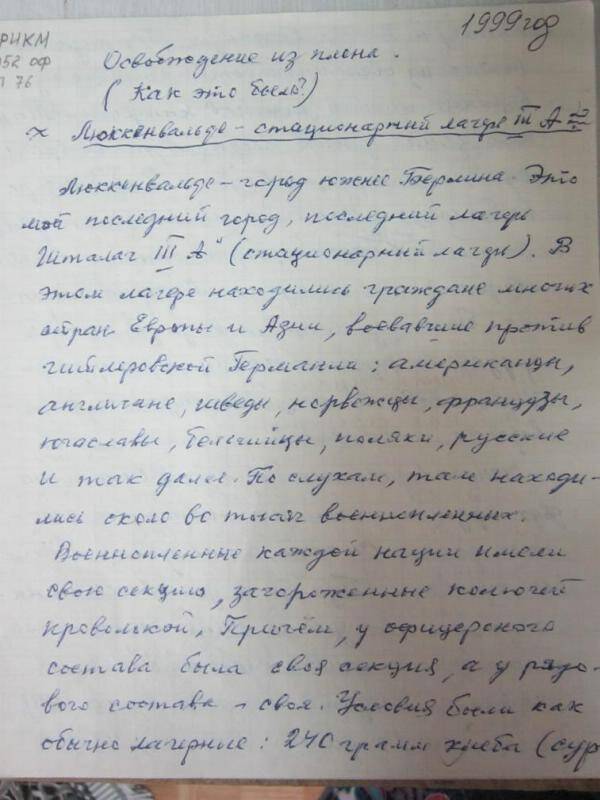 1999 год
РИКМ
952 оф
76
Освобождение из плена.
(Как это было?)
Люккенвальде - стационарный лагерь III А
Люккенвальде - город южнее Берлина. Это
мой последний город, последний лагерь
Шталаг III А" (стационарный лагерь). В
этом лагере находились граждане многих
стран Европы и Азии, воевавшие против
гитлеровской Германии: американцы,
англичане, шведы, норвежцы, французы,
югославы, бельгийцы, поляки, русские
и так далее. По слухам, там находи-
лись около 80 тысяч военнопленных.
Военнопленные каждой нации имели
свою секцию, загороженные колючей
проволокой. Причём, у офицерского
состава была своя секция, а у рядо-
вого состава - своя. Условия были как
обычно лагерные: 240 грамм хлеба (сур